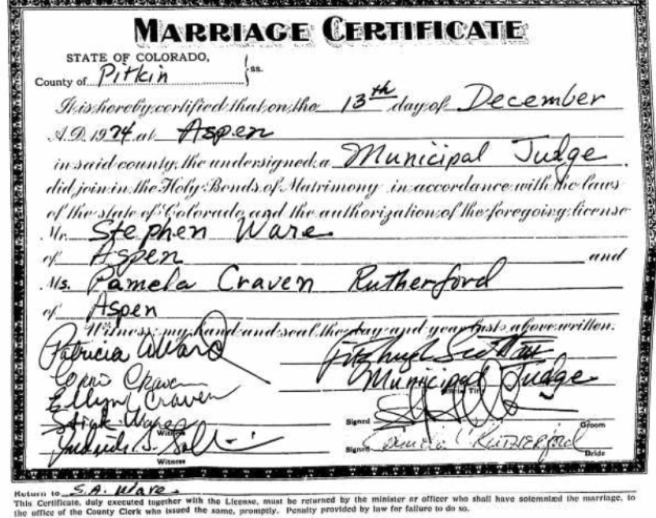 MARRIAGE CERTIFICATE
STATE OF COLORADO,
ss.
County of Pitkin
It is hereby certified that on the 13th day of December
A.D. 1974 at Aspen
in said county, the undersigned, a Municipal Judge
did join in the Holy Bonds of Matrimony in accordance with the laws
of the state of Colorado and the authorization of the foregoing license
Mr. Stephen Ware
of Aspen and
Ms. Pamela Craven Rutherford
of Aspen
Witness my hand and seal the day and year last above written.
Patricia
Craven
Municipal Judge
Official Title
Ellyn Craven
Ware
Signed Groom
Witness
Signed Rutherford
Bride
Witness
Return to S.A. Ware
This Certificate, duly executed together with the License, must be returned by the minister or officer who shall have solemnized the marriage, to
the office of the County Clerk who issued the same, promptly. Penalty provided by law for failure to do so.